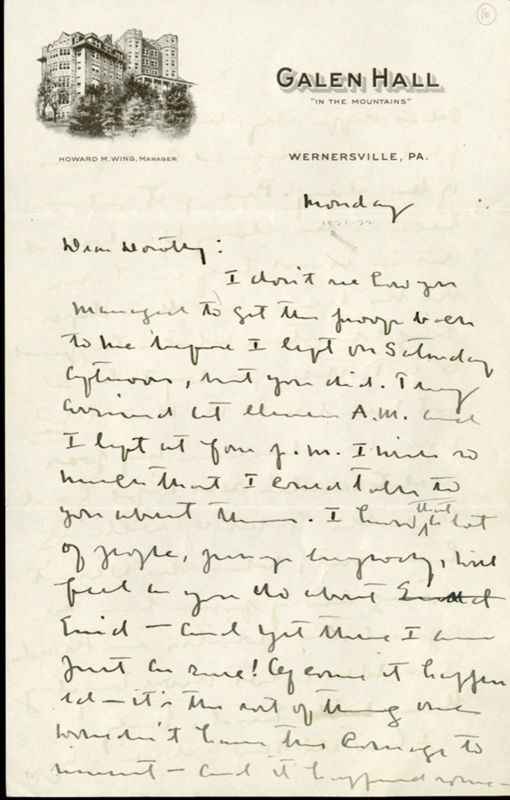 16
GALEN HALL
"IN THE MOUNTAINS"
HOWARD M. WING, MANAGER
WERNERSVILLE, PA.
Monday
1921-22
Dear Dorothy:
I don't see how you
managed to get the proofs back
to me before I left on Saturday
afternoon, but you did. They
arrived at eleven A.M. and
I left at four p.m. I wish so
much that I could talk to
you about them. I know that a lot
of people, perhaps anybody, will
feel as you do about
Enid — and yet there I am
just as sure! Of course it happen
ed — it's the sort of thing one
wouldn't have the courage to
invent — and it happened some-